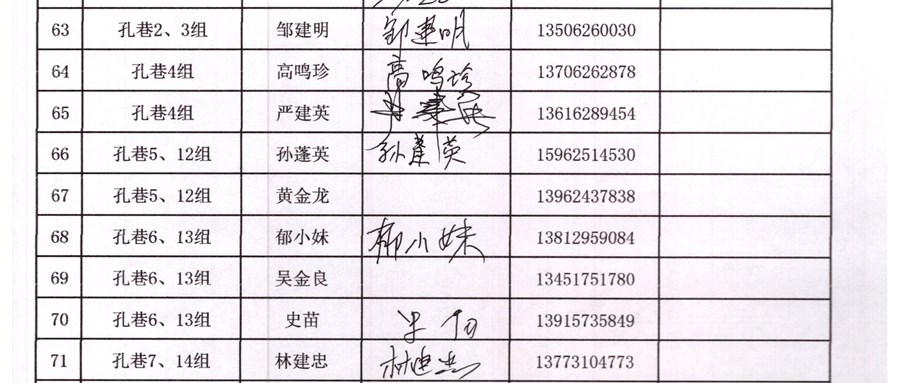 63 孔巷2、3组 邹建明 邹建明 13506260030
64 孔巷4组 高鸣珍 高鸣珍 13706262878
65 孔巷4组 严建英 13616289454
66 孔巷5、12组 孙蓬英 孙蓬英 15962514530
67 孔巷5、12组 黄金龙 13962437838
68 孔巷6、13组 郁小妹 郁小妹 13812959084
69 孔巷6、13组 吴金良 13451751780
70 孔巷6、13组 史苗 史 13915735849
71 孔巷7、14组 林建忠 林建忠 13773104773